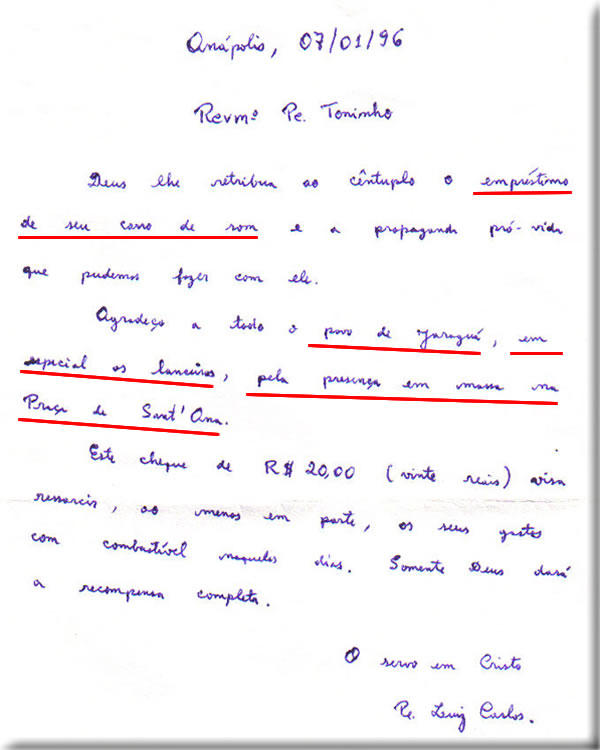 Anápolis, 07/01/96
Revmº Pe. Toninho
Deus lhe retribua ao cêntuplo o empréstimo
de seu carro de som e a propaganda pró-vida
que pudemos fazer com ele.
Agradeço a todo o povo de Jaraguá, em
especial os lanceiros, pela presença em massa na
Praça de Sant'Ana.
Este cheque de R$ 20,00 (vinte reais) visa
ressarcir, ao menos em parte, os seus gastos
com combustível naqueles dias. Somente Deus dará
a recompensa completa.
O servo em Cristo
Pe. Luiz Carlos.